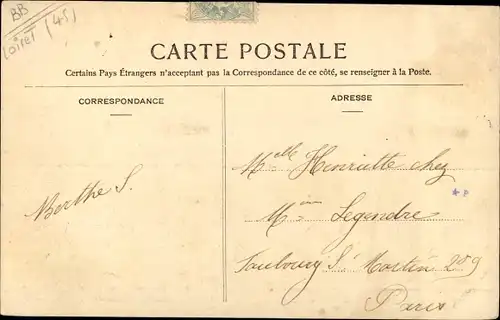 BB
Loiret (45)
CARTE POSTALE
Certains Pays Étrangers n'acceptant pas la Correspondance de ce côté, se renseigner à la Poste.
CORRESPONDANCE
Berthe S.
ADRESSE
Melle Henriette chez
* P
Me Legendre
Faubourg St Martin 209
Paris